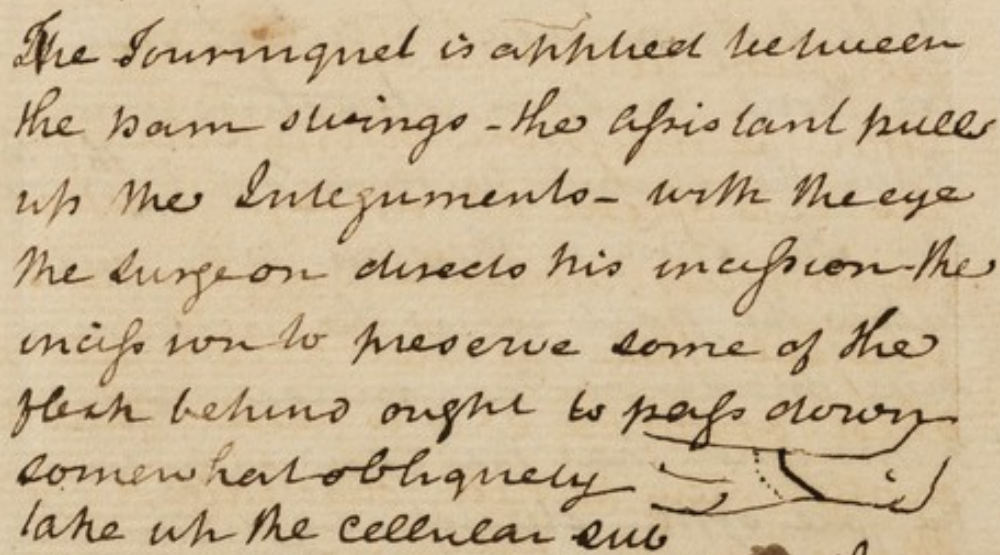 The Tourniquet is applied between
the ham strings - the assistant pulls
up the Integuments - with the eye
the surgeon directs his incission - the
incission to preserve some of the
flesh behind ought to pass down
somewhat obliquely
take up the cellular sub